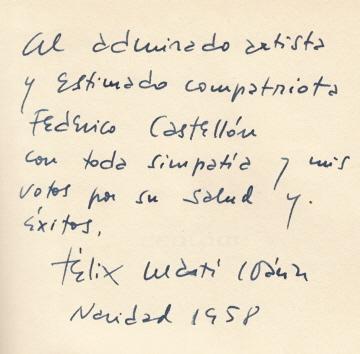 Al admirado artista
y estimado compatriota
Federico Castellón
con toda simpatía y mis
votos por su salud y.
éxitos.
Félix Martí Ibáñez
Navidad 1958